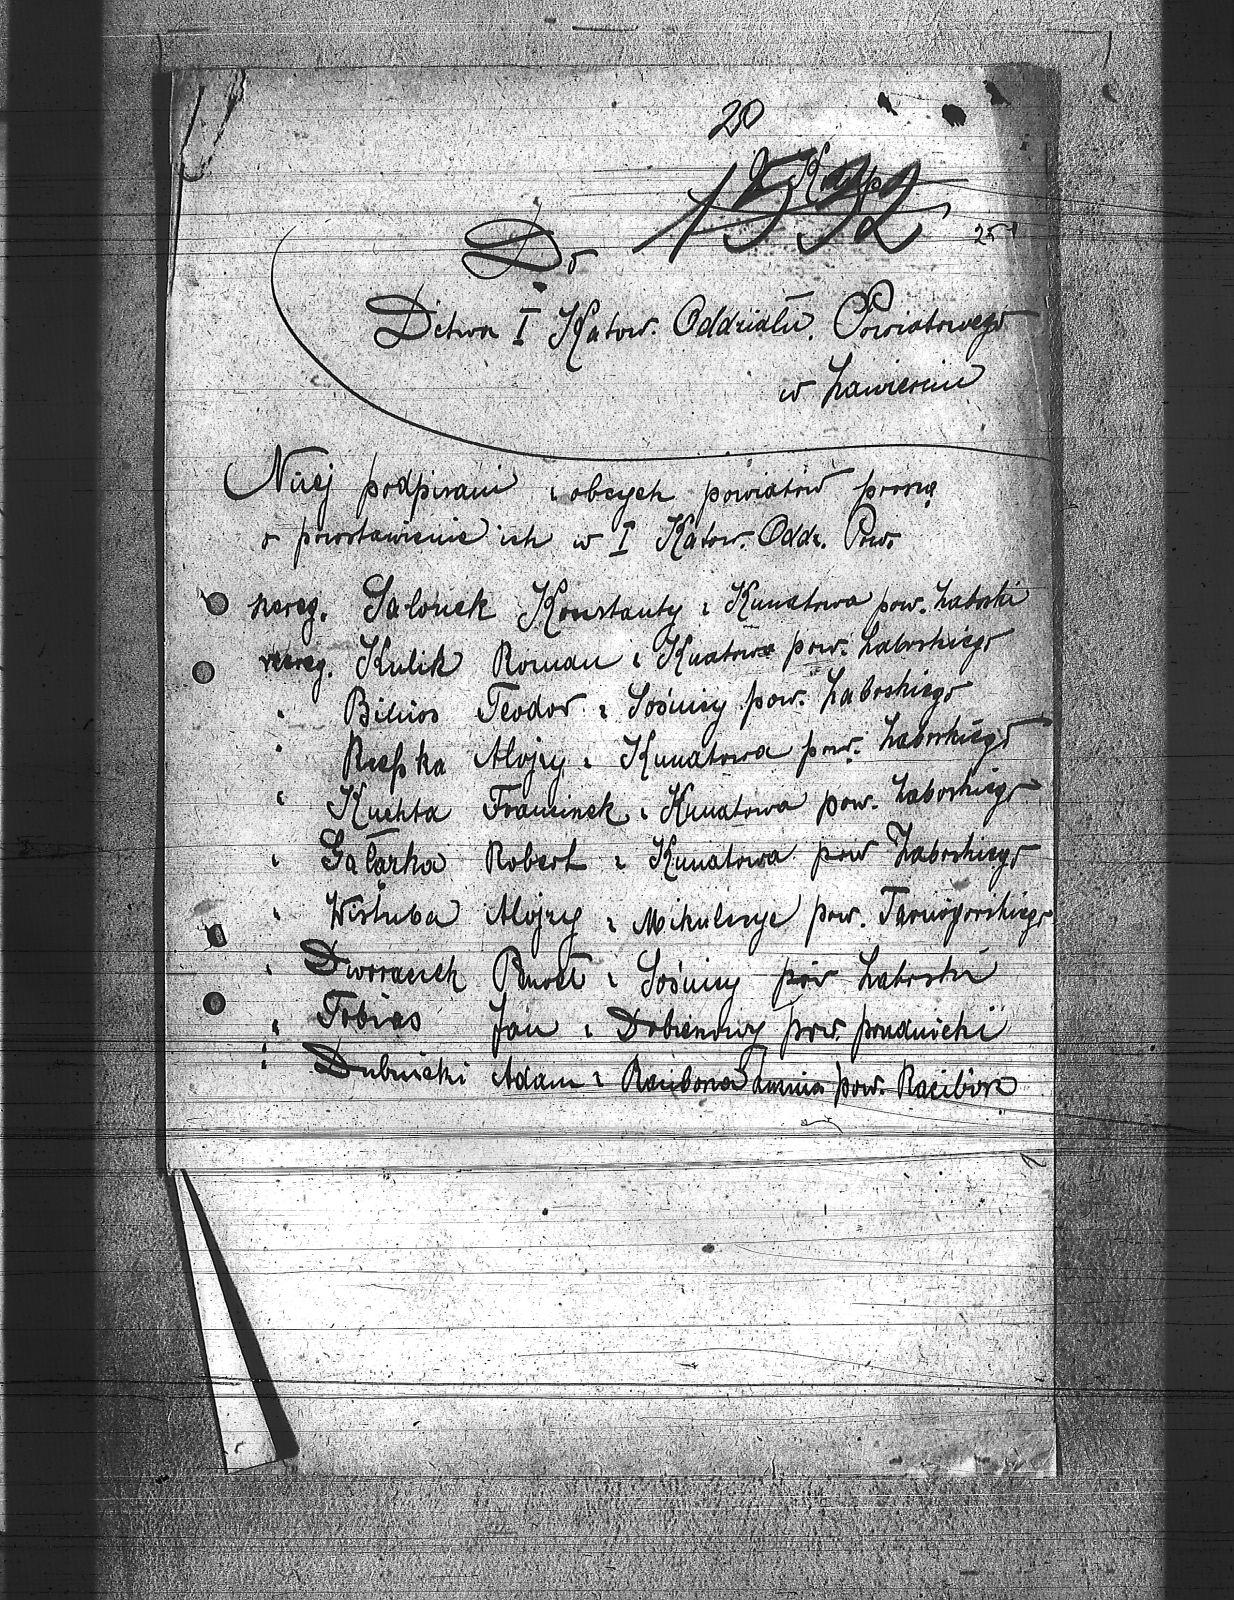 20
1532
25
Do
Dctwa I Katow. Oddziału Powiatowego
w Zawierciu
Niżej podpisani z obcych powiatów proszą
o pozostawienie ich w I Katow. Oddz. Pow.
szereg. Galonek Konstanty z Kunatowa pow. Zabrski
szereg. Kulik Roman z Kunatowa pow. Zabrskiego
" Teodor z Sośnicy pow. Zabrskiego
" Rzepka Alojzy z Kunatowa pow. Zabrskiego
" Kuchta Franciszek z Kunatowa pow. Zabrskiego
" Gałązka Robert z Kunatowa pow Zabrskiego
" Wistuba Alojzy z Mikulczyc pow. Tarnogórskiego
" Dworaczek z Sośnicy pow Zabrski
" Tobias Jan z pow. prudnicki
" Dubnicki Adam z pow. Racibórz